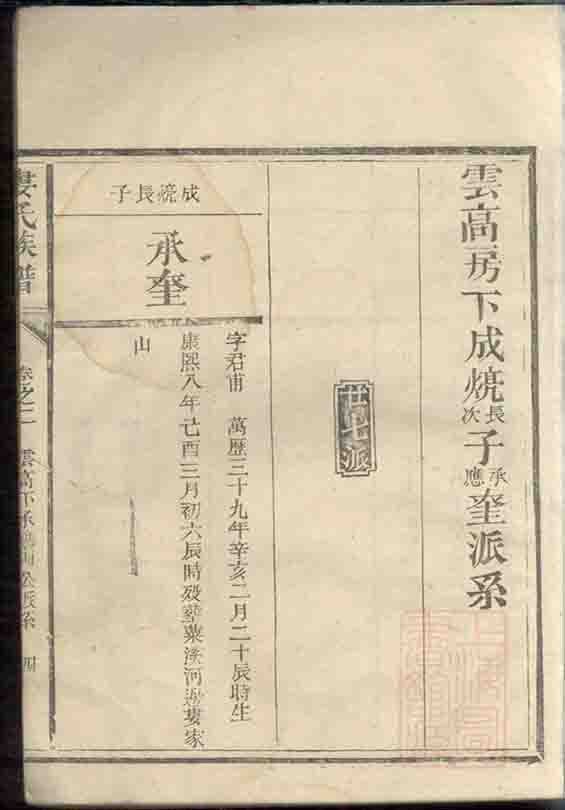 雲高房下成燒長次子承應奎派系
廿七派
成燒長子
承奎
字君甫 萬歷三十九年辛亥二月二十辰時生
康熙八年己酉三月初六辰時殁塟粟溪河邊婁家
山
婁氏族譜
卷之二 雲高下承 派系 四